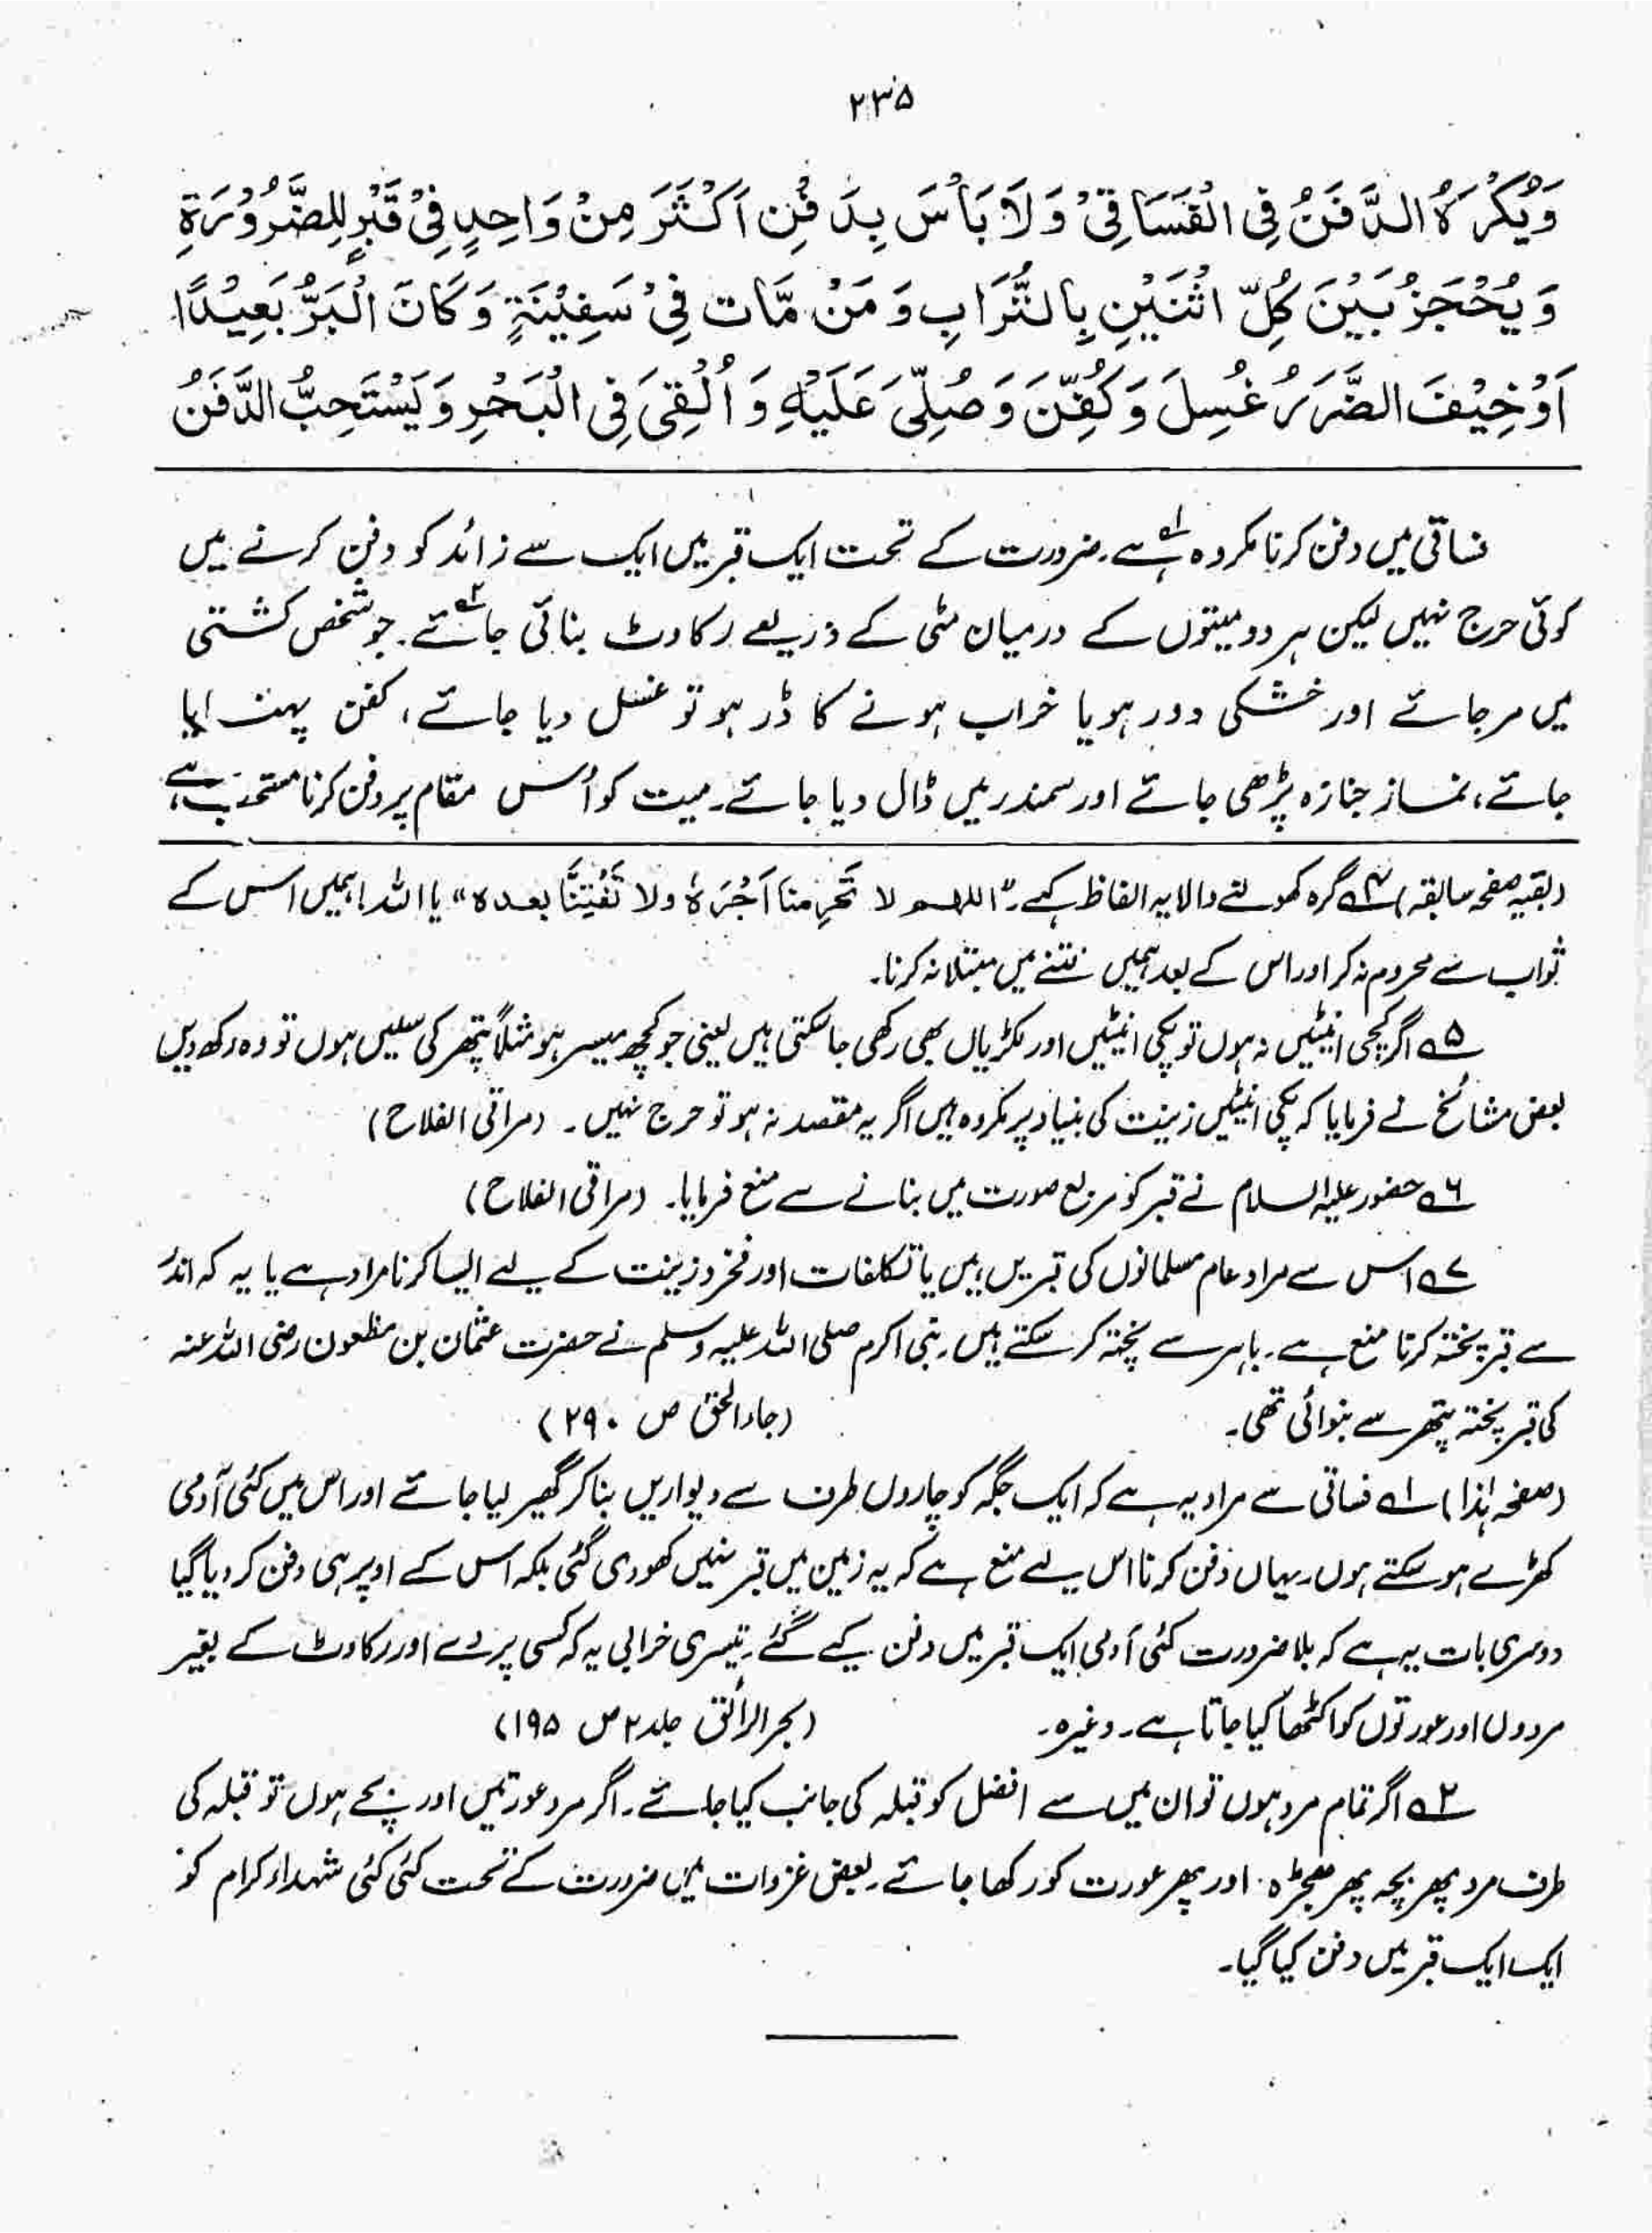 ۲۳۵
وَيُكْرَهُ الدَّفَنُ فِی الْفَسَاقِیْ وَلَا بَأْسَ بِدَفْنِ اَكْثَرَ مِنْ وَاحِدٍ فِیْ قَبْرٍ لِلضَّرُوْرَةِ
وَيُحْجَزُ بَيْنَ كُلِّ اثْنَيْنِ بِالتُّرَابِ وَمَنْ مَّات فِیْ سَفِيْنَةٍ وَكَانَ الْبَرُّ بَعِيْدًا
اَوْخِيْفَ الضَّرَرُ غُسِلَ وَكُفِّنَ وَصُلِّیَ عَلَيْهِ وَاُلْقِیَ فِی الْبَحْرِ وَيَسْتَحِبُّ الدَّفَنُ
فساقی میں دفن کرنا مکروہ ہے۱؎۔ ضرورت کے تحت ایک قبر میں ایک سے زائد کو دفن کرنے میں
کوئی حرج نہیں لیکن ہر دو میتوں کے درمیان مٹی کے ذریعے رکاوٹ بنائی جائے۲؎۔ جو شخص کشتی
میں مر جائے اور خشکی دور ہو یا خراب ہونے کا ڈر ہو تو غسل دیا جائے، کفن پہنایا
جائے، نماز جنازہ پڑھی جائے اور سمندر میں ڈال دیا جائے۔ میت کو اُس مقام پر دفن کرنا مستحب ہے
(بقیہ صفحہ سابقہ) ۴؎ گرہ کھولنے والا یہ الفاظ کہے۔ "اللهم لا تَحْرِمنا اَجْرَهٗ ولا تَفْتِنَّا بعدہ" یا اللہ! ہمیں اس کے
ثواب سے محروم نہ کر اور اس کے بعد ہمیں فتنے میں مبتلا نہ کرنا۔
۵؎ اگر کچی اینٹیں نہ ہوں تو پکی اینٹیں اور لکڑیاں بھی رکھی جا سکتی ہیں یعنی جو کچھ میسر ہو مثلاً پتھر کی سلیں ہوں تو وہ رکھ دیں
بعض مشائخ نے فرمایا کہ پکی اینٹیں زینت کی بنیاد پر مکروہ ہیں اگر یہ مقصد نہ ہو تو حرج نہیں۔ (مراقی الفلاح)
۶؎ حضور علیہ السلام نے قبر کو مربع صورت میں بنانے سے منع فرمایا۔ (مراقی الفلاح)
۷؎ اس سے مراد عام مسلمانوں کی قبریں ہیں یا تکلفات اور فخر و زینت کے لیے ایسا کرنا مراد ہے یا یہ کہ اندر
سے قبر پختہ کرنا منع ہے۔ باہر سے پختہ کر سکتے ہیں۔ نبی اکرم صلی اللہ علیہ وسلم نے حضرت عثمان بن مظعون رضی اللہ عنہ
کی قبر پختہ پتھر سے بنوائی تھی۔ (جاء الحق ص ۲۹۰)
(صفحہ ہٰذا) ۱؎ فساقی سے مراد یہ ہے کہ ایک جگہ کو چاروں طرف سے دیواریں بنا کر گھیر لیا جائے اور اس میں کئی آدمی
کھڑے ہو سکتے ہوں۔ یہاں دفن کرنا اس لیے منع ہے کہ یہ زمین میں قبر نہیں کھودی گئی بلکہ اس کے اوپر ہی دفن کر دیا گیا
دوسری بات یہ ہے کہ بلا ضرورت کئی آدمی ایک قبر میں دفن کیے گئے۔ تیسری خرابی یہ کہ کسی پردے اور رکاوٹ کے بغیر
مردوں اور عورتوں کو اکٹھا کیا جاتا ہے۔ وغیرہ۔ (بحر الرائق جلد ۲ ص ۱۹۵)
۲؎ اگر تمام مرد ہوں تو ان میں سے افضل کو قبلہ کی جانب کیا جائے۔ اگر مرد عورتیں اور بچے ہوں تو قبلہ کی
طرف مرد پھر بچہ پھر ہیجڑہ اور پھر عورت کو رکھا جائے۔ بعض غزوات میں ضرورت کے تحت کئی کئی شہداء کرام کو
ایک ایک قبر میں دفن کیا گیا۔